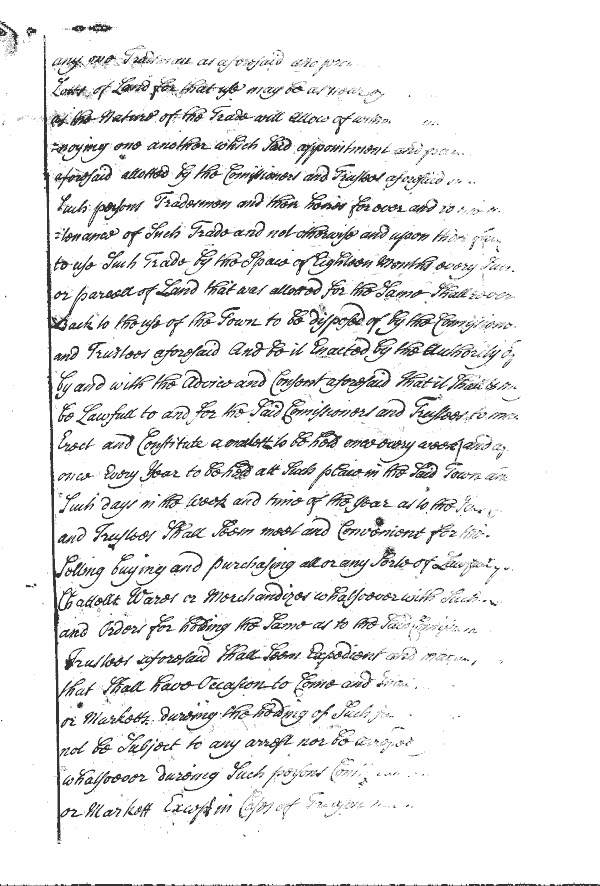 any one Tradsman as aforesaid and
Lotts of Land for that use may be as near
as the Nature of the Trade will allow of
=noying one another which Said appointment and
aforesaid allotted by the Comissioners and Trustees aforesaid
Such persons Tradesmen and their heires for ever and
=tenance of Such Trade and not otherwise and upon their
to use Such Trade by the Space of Eighteen Months every
or parcell of Land that was allotted for the Same Shall
Back to the use of the Town to be disposed of by the
and Trustees aforesaid And be it Enacted by the Authority
by and with the Advice and Consent aforesaid That it Shall
be Lawfull to and for the Said Comissioners and Trustees to
Erect and Constitute a markett to be held once every week and
once Every Year to be held att Such place in the Said Town
Such days in the Week and time of the Year as to the
and Trustees Shall Seem meet and Convenient for the
Selling buying and purchasing all or any Sorts of
Chattells Wares or Merchandizes whatsoever with Such
and Orders for holding the Same as to the Said
Trustees aforesaid Shall Seem Expedient and
that Shall have Occasion to Come and
or Marketts dureing the holding of Such
not be Subject to any arrest nor be
whatsoever dureing Such persons
or Markett Except in Cases of